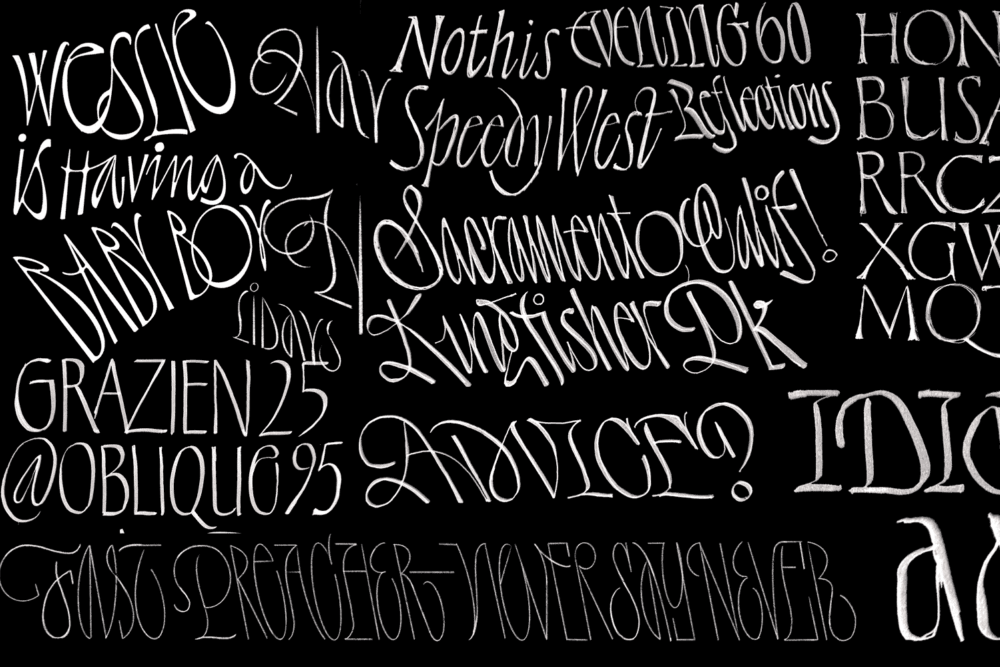 Weslie
is Having a
BABY BOY
GRAZIEN 25
@OBLIQUO95
Nothis
EVENING 60
Speedy West
Reflections
Sacramento Calif!
Kungfisher Pk
ADVICE?
HON
BUSA
RRCZ
XGW
MQ
IDIO
FAST PREACHER
NEVER